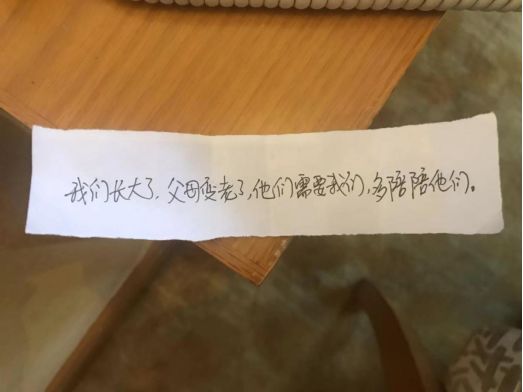 我们长大了，父母变老了，他们需要我们，多陪陪他们。